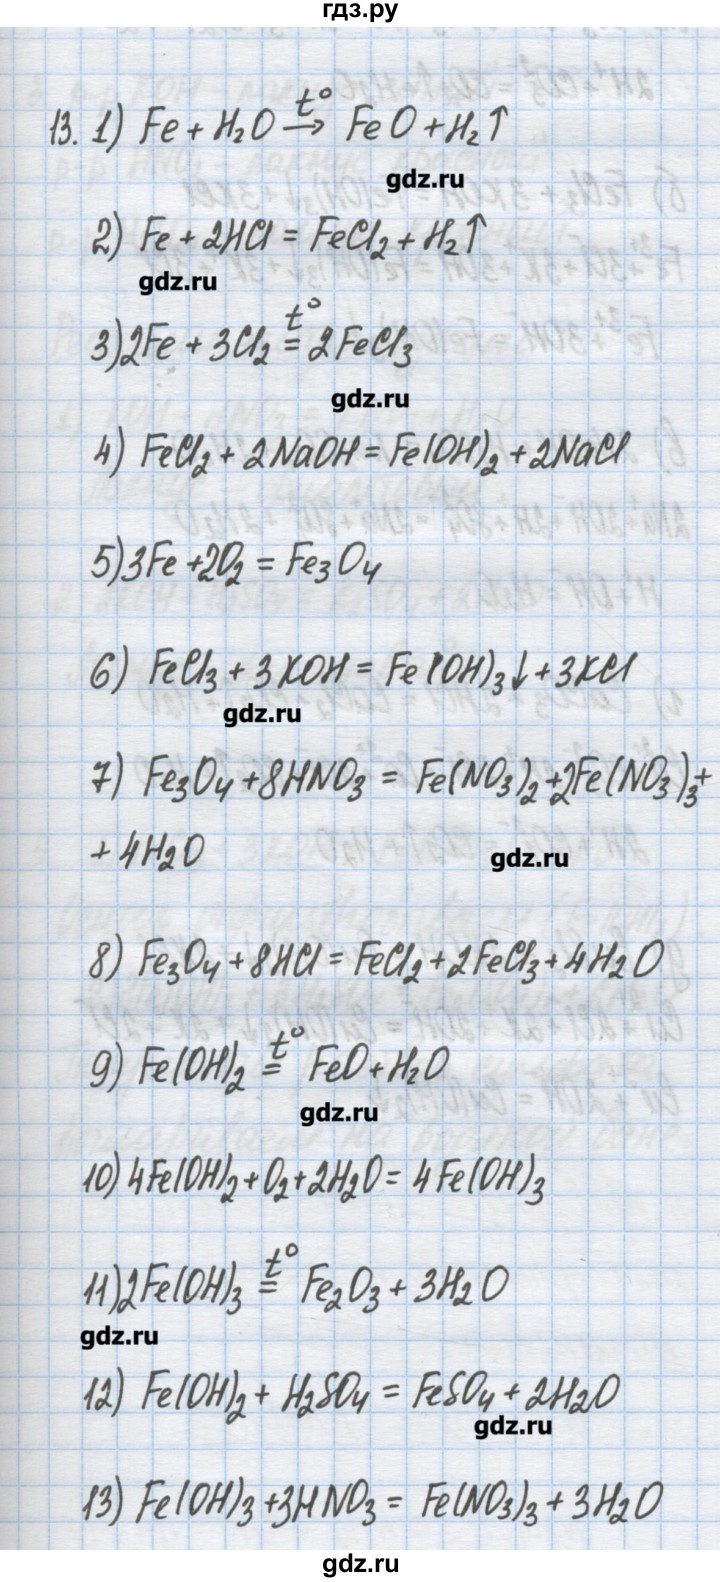 гдз.ру
13. 1) Fe + H₂O →t° FeO + H₂↑
gdz.ru
2) Fe + 2HCl = FeCl₂ + H₂↑
gdz.ru
3) 2Fe + 3Cl₂ =t° 2FeCl₃
gdz.ru
4) FeCl₂ + 2NaOH = Fe(OH)₂ + 2NaCl
5) 3Fe + 2O₂ = Fe₃O₄
6) FeCl₃ + 3KOH = Fe(OH)₃↓ + 3KCl
gdz.ru
7) Fe₃O₄ + 8HNO₃ = Fe(NO₃)₂ + 2Fe(NO₃)₃ +
+ 4H₂O
gdz.ru
8) Fe₃O₄ + 8HCl = FeCl₂ + 2FeCl₃ + 4H₂O
9) Fe(OH)₂ =t° FeO + H₂O
gdz.ru
10) 4Fe(OH)₂ + O₂ + 2H₂O = 4Fe(OH)₃
11) 2Fe(OH)₃ =t° Fe₂O₃ + 3H₂O
gdz.ru
12) Fe(OH)₂ + H₂SO₄ = FeSO₄ + 2H₂O
gdz.ru
13) Fe(OH)₃ + 3HNO₃ = Fe(NO₃)₃ + 3H₂O
gdz.ru